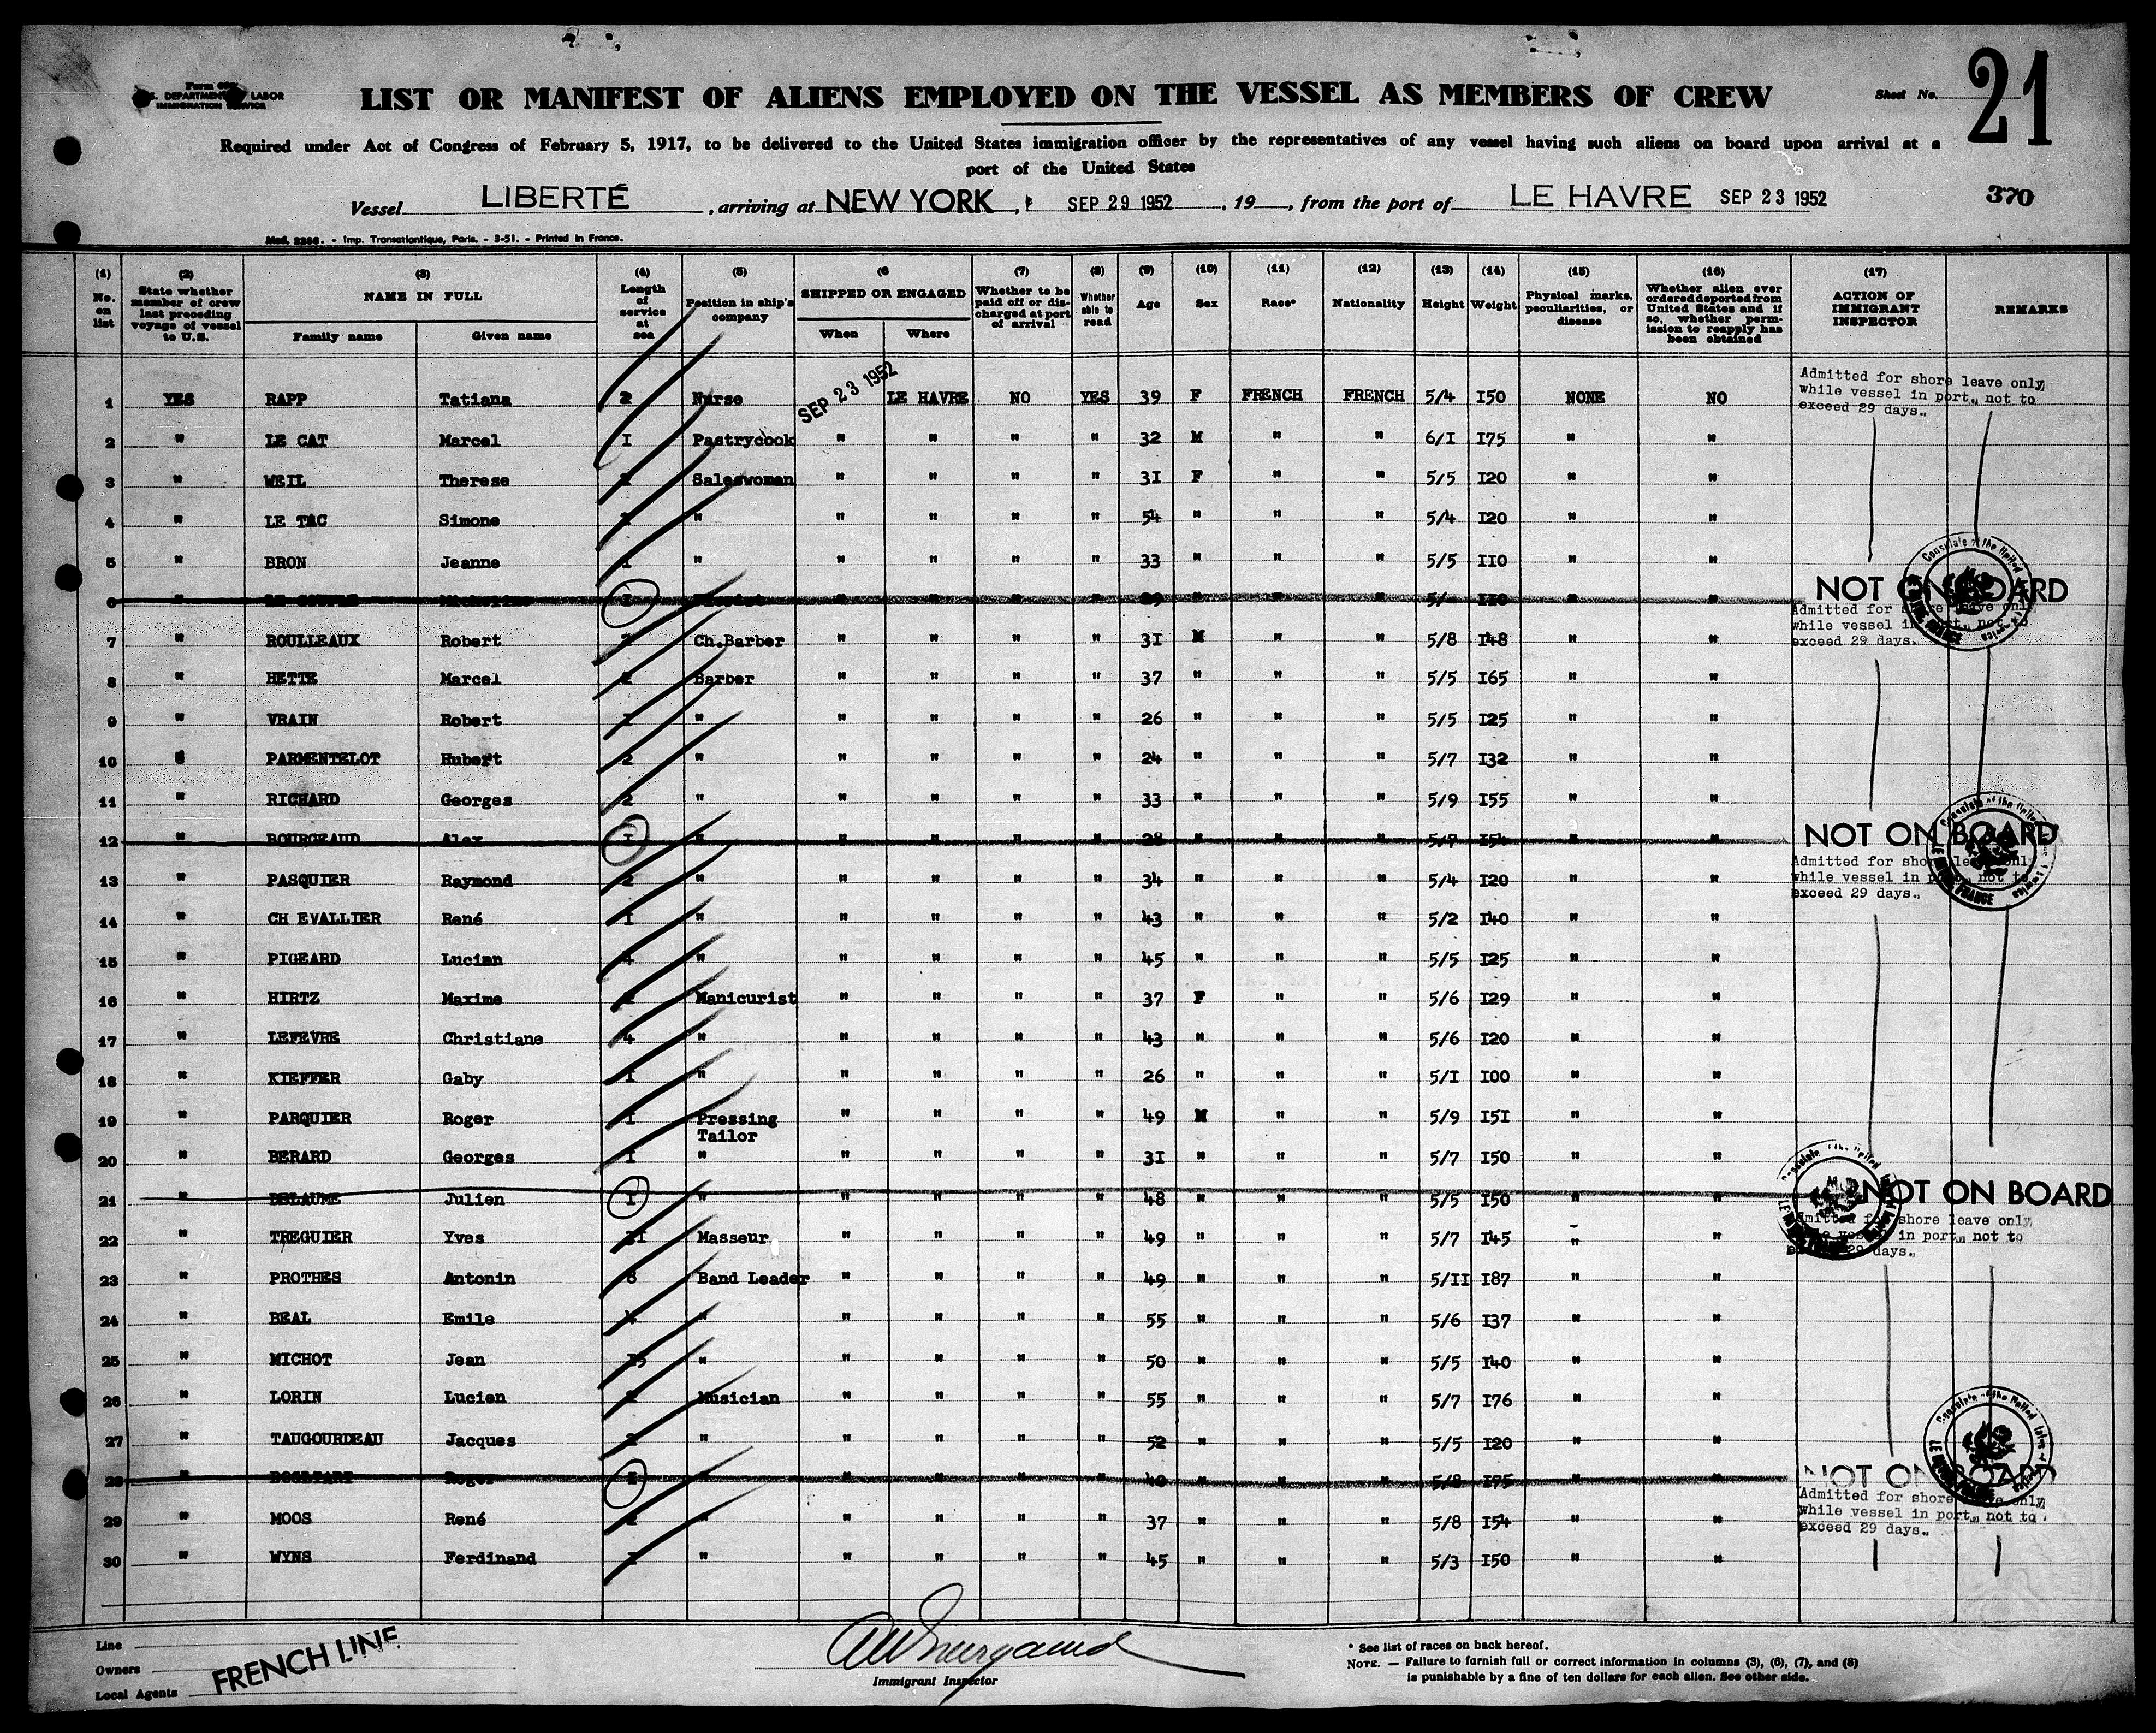 Form 689
U.S. DEPARTMENT OF LABOR
IMMIGRATION SERVICE
LIST OR MANIFEST OF ALIENS EMPLOYED ON THE VESSEL AS MEMBERS OF CREW
Sheet No. 21
Required under Act of Congress of February 5, 1917, to be delivered to the United States immigration officer by the representatives of any vessel having such aliens on board upon arrival at a
port of the United States
Vessel LIBERTÉ, arriving at NEW YORK, SEP 29 1952, 19, from the port of LE HAVRE SEP 23 1952 370
Mod. 2286. - Imp. Transatlantique, Paris. - 3-51. - Printed in France.
(1) No. on list (2) State whether member of crew last preceding voyage of vessel to U.S. (3) NAME IN FULL Family name Given name (4) Length of service at sea (5) Position in ship's company (6 SHIPPED OR ENGAGED When Where (7) Whether to be paid off or discharged at port of arrival (8) Whether able to read (9) Age (10) Sex (11) Race* (12) Nationality (13) Height (14) Weight (15) Physical marks, peculiarities, or disease (16) Whether alien ever ordered deported from United States and if so, whether permission to reapply has been obtained (17) ACTION OF IMMIGRANT INSPECTOR REMARKS
1 YES RAPP Tatiana 2 Nurse SEP 23 1952 LE HAVRE NO YES 39 F FRENCH FRENCH 5/4 I50 NONE NO Admitted for shore leave only, while vessel in port., not to exceed 29 days.,
2 " LE CAT Marcel I Pastrycook " " " " 32 M " " 6/I I75 " "
3 " WEIL Therese Saleswoman " " " " 31 F " " 5/5 I20 " "
4 " LE TAC Simone " " " " " 54 " " " 5/4 I20 " "
5 " BRON Jeanne I " " " " " 33 " " " 5/5 II0 " "
6 " I " " " " " " " 5/ II0 " " NOT ON BOARD
Admitted for shore leave only while vessel in port., not to exceed 29 days.
7 " ROULLEAUX Robert 2 Ch.Barber " " " " 31 M " " 5/8 I48 " "
8 " HETTE Marcel 2 Barber " " " " 37 " " " 5/5 I65 " "
9 " VRAIN Robert I " " " " " 26 " " " 5/5 I25 " "
10 " PARMENTELOT Hubert 2 " " " " " 24 " " " 5/7 I32 " "
11 " RICHARD Georges 2 " " " " " 33 " " " 5/9 I55 " "
12 " BOURGEAUD Alex I " " " " " 28 " " " 5/7 I54 " " NOT ON BOARD
Admitted for shore leave only while vessel in port., not to exceed 29 days.,
13 " PASQUIER Raymond 2 " " " " " 34 " " " 5/4 I20 " "
14 " CH EVALLIER René I " " " " " 43 " " " 5/2 I40 " "
15 " PIGEARD Lucian 4 " " " " " 45 " " " 5/5 I25 " "
16 " HIRTZ Maxime Manicurist " " " " 37 F " " 5/6 I29 " "
17 " LEFEVRE Christiane 4 " " " " " 43 " " " 5/6 I20 " "
18 " KIEFFER Gaby I " " " " " 26 " " " 5/I I00 " "
19 " PARQUIER Roger I Pressing Tailor " " " " 49 M " " 5/9 I5I " "
20 " BERARD Georges I " " " " " 31 " " " 5/7 I50 " "
21 " DELAUME Julien I " " " " " 48 " " " 5/5 I50 " " NOT ON BOARD
Admitted for shore leave only, while vessel in port., not to exceed 29 days.,
22 " TREGUIER Yves Masseur " " " " 49 " " " 5/7 I45 " "
23 " PROTHES Antonin 8 Band Leader " " " " 49 " " " 5/II I87 " "
24 " BEAL Emile " " " " " 55 " " " 5/6 I37 " "
25 " MICHOT Jean I5 " " " " " 50 " " " 5/5 I40 " "
26 " LORIN Lucien Musician " " " " 55 " " " 5/7 I76 " "
27 " TAUGOURDEAU Jacques 2 " " " " " 52 " " " 5/5 I20 " "
28 " Roger I " " " " " 40 " " " 5/8 I75 " " NOT ON BOARD
Admitted for shore leave only, while vessel in port., not to exceed 29 days.,
29 " MOOS René " " " " " 37 " " " 5/8 I54 " "
30 " WYNS Ferdinand I " " " " " 45 " " " 5/3 I50 " "
Line
Owners FRENCH LINE
Local Agents
Immigrant Inspector
* See list of races on back hereof.
NOTE. — Failure to furnish full or correct information in columns (3), (6), (7), and (8)
is punishable by a fine of ten dollars for each alien. See other side.